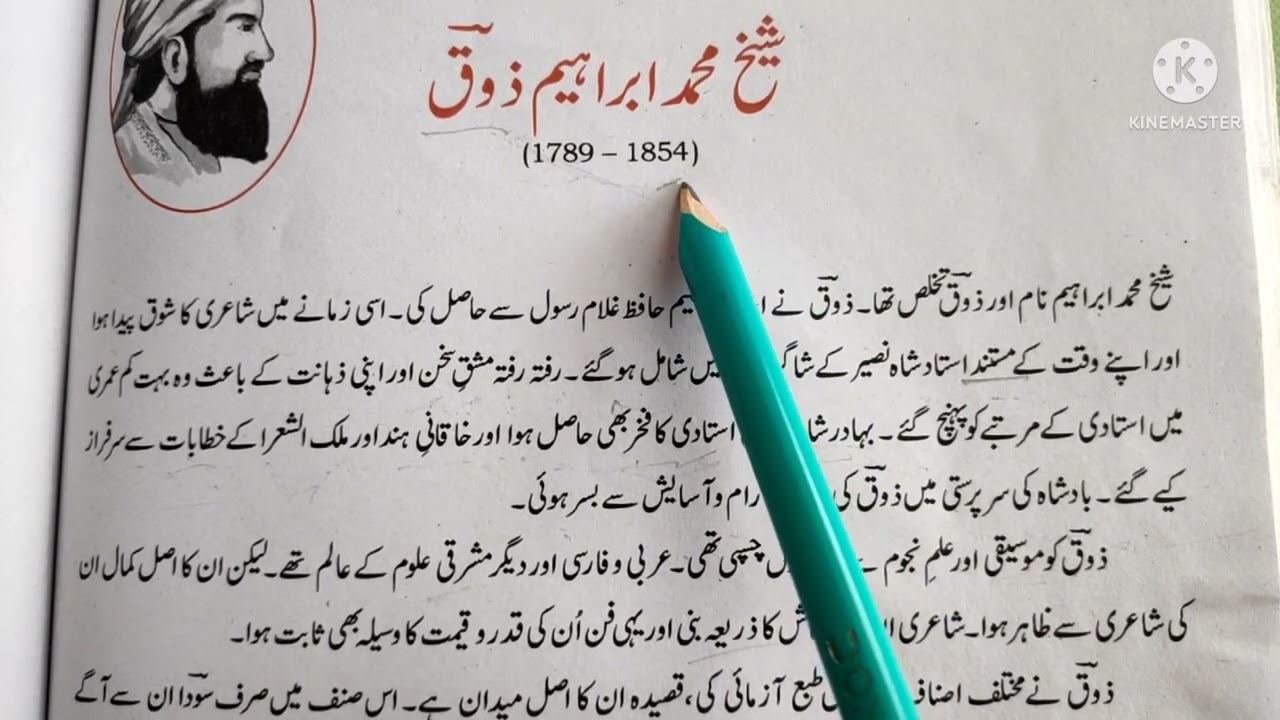 KINEMASTER
شیخ محمد ابراہیم ذوقؔ
(1789 – 1854)
شیخ محمد ابراہیم نام اور ذوقؔ تخلص تھا۔ ذوقؔ نے حافظ غلام رسول سے حاصل کی۔ اسی زمانے میں شاعری کا شوق پیدا ہوا
اور اپنے وقت کے مستند استاد شاہ نصیر کے میں شامل ہو گئے۔ رفتہ رفتہ مشقِ سخن اور اپنی ذہانت کے باعث وہ بہت کم عمری
میں استادی کے مرتبے کو پہنچ گئے۔ بہادر استادی کا فخر بھی حاصل ہوا اور خاقانیِ ہند اور ملک الشعرا کے خطابات سے سرفراز
کیے گئے۔ بادشاہ کی سرپرستی میں ذوقؔ کی و آسایش سے بسر ہوئی۔
ذوقؔ کو موسیقی اور علمِ نجوم تھی۔ عربی و فارسی اور دیگر مشرقی علوم کے عالم تھے۔ لیکن ان کا اصل کمال ان
کی شاعری سے ظاہر ہوا۔ شاعری کا ذریعہ بنی اور یہی فن اُن کی قدر و قیمت کا وسیلہ بھی ثابت ہوا۔
ذوقؔ نے مختلف طبع آزمائی کی، قصیدہ ان کا اصل میدان ہے۔ اس صنف میں صرف سوداؔ ان سے آگے